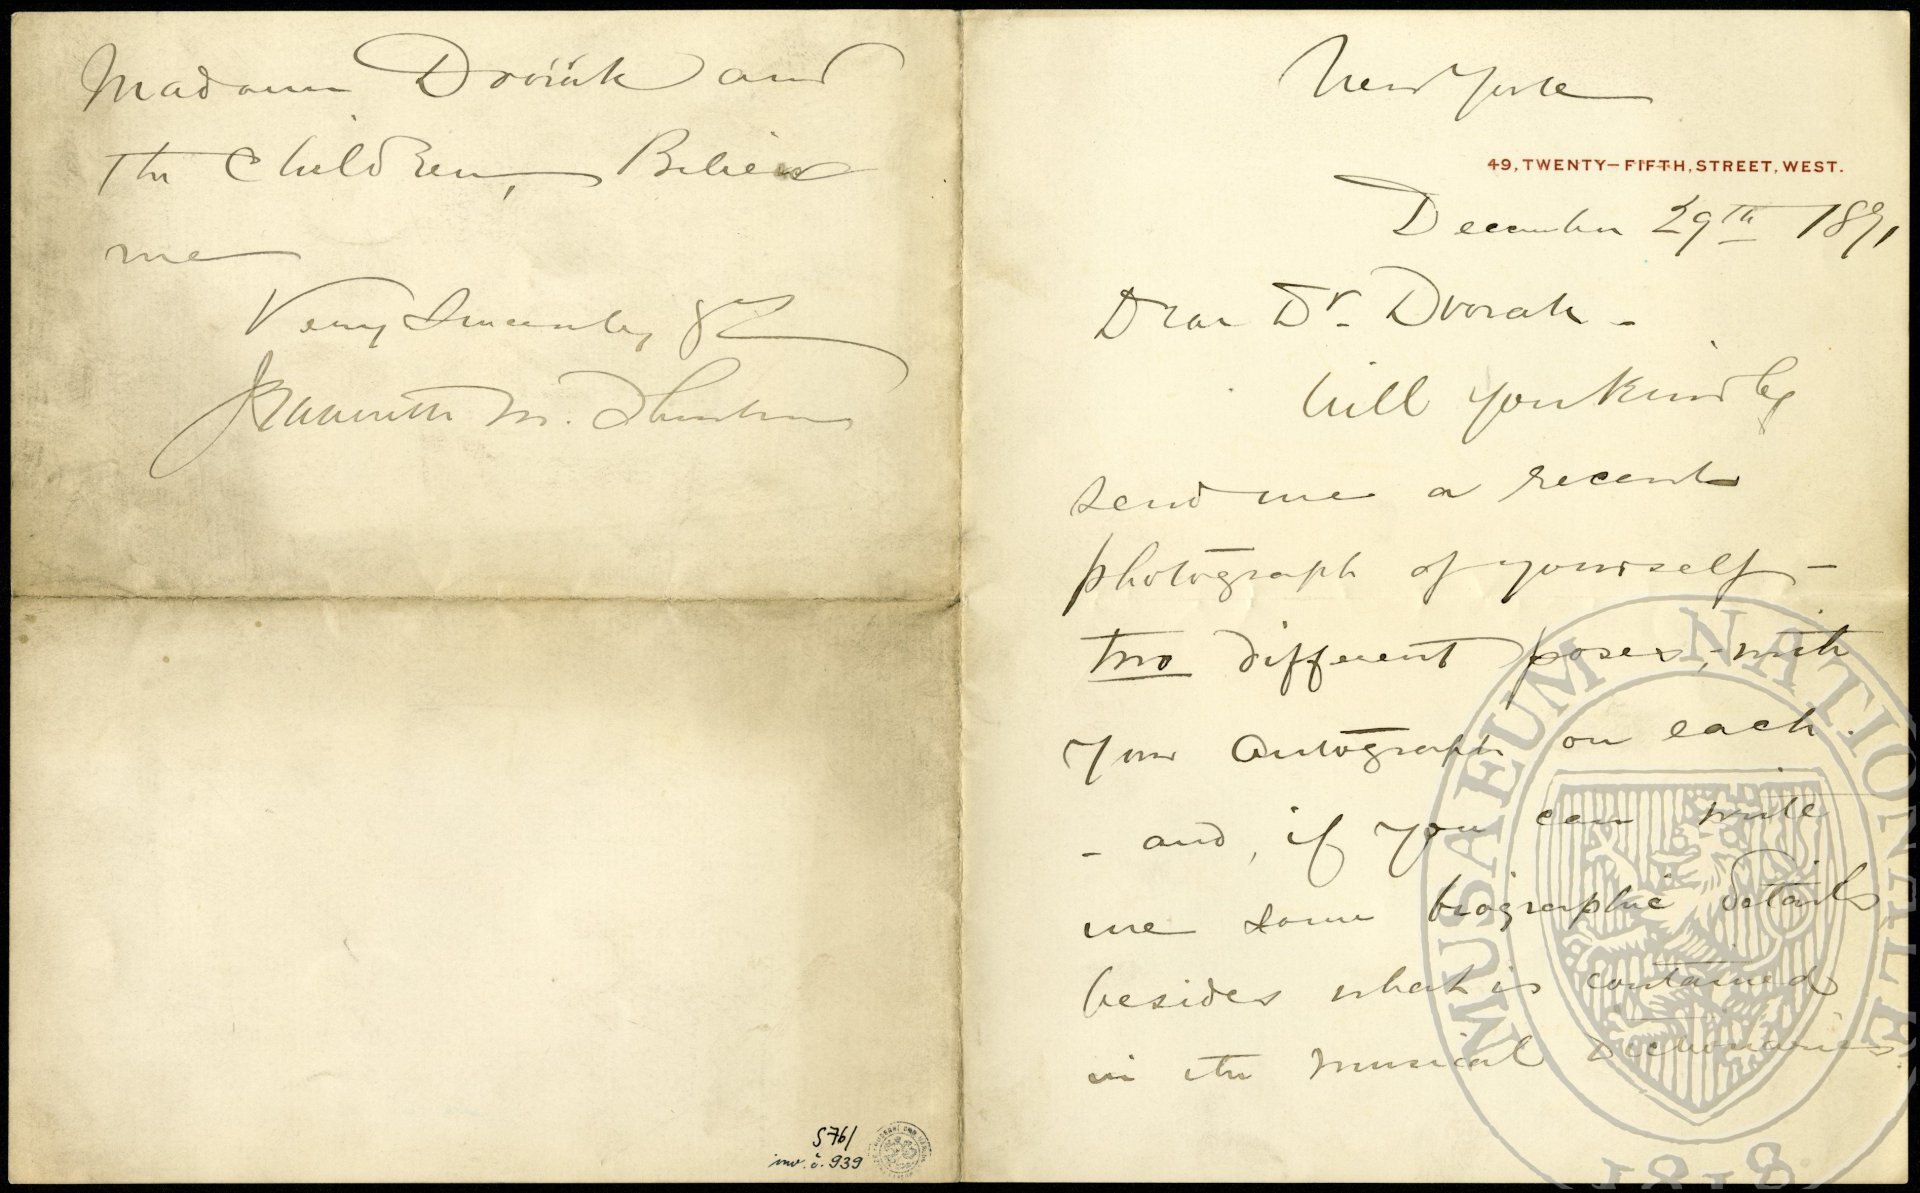 New York
49, TWENTY-FIFTH, STREET, WEST.
December 29th 1891
Dear Dr. Dvorak -
Will you kindly
send me a recent
photograph of yourself -
two different poses, - with
your autograph on each.
- and, if you can write
me some biographic details
besides what is contained
in the musical dictionaries
Madame Dvořák and
the Children, Believe
me
Very Sincerely yrs
Jeannette M. Thurber
S 76/
inv. č. 939
MUSAEUM NATIONALE
1818